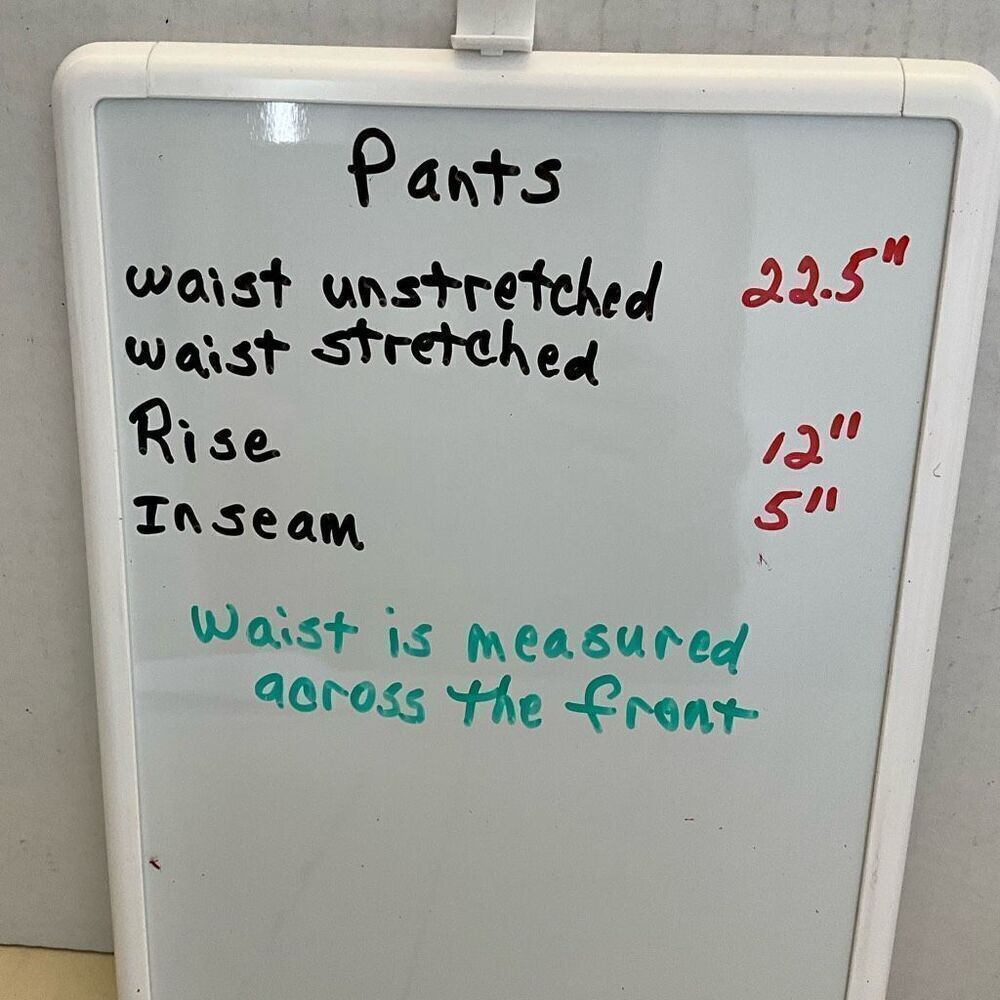 Pants
waist unstretched 22.5"
waist stretched
Rise 12"
Inseam 5"
Waist is measured
across the front